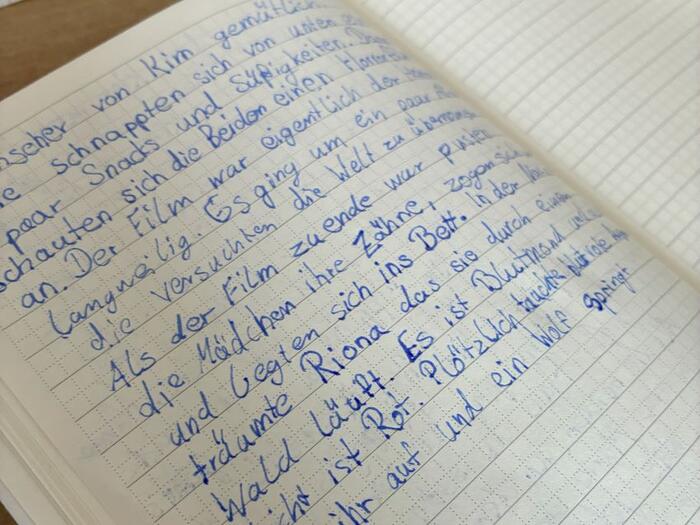 von Kim gemütlich
schnappten sich von unten
paar Snacks und Süßigkeiten.
schauten sich die Beiden einen
an. Der Film war eigentlich der
langweilig. Es ging um ein paar
die versuchten die Welt zu
Als der Film zuende war putzten
die Mädchen ihre Zähne, zogen sich
und legten sich ins Bett. In der
träumte Riona das sie durch einen
Wald läuft. Es ist Blutmond
ist Rot. Plötzlich tauchte
ihr auf und ein Wolf springt